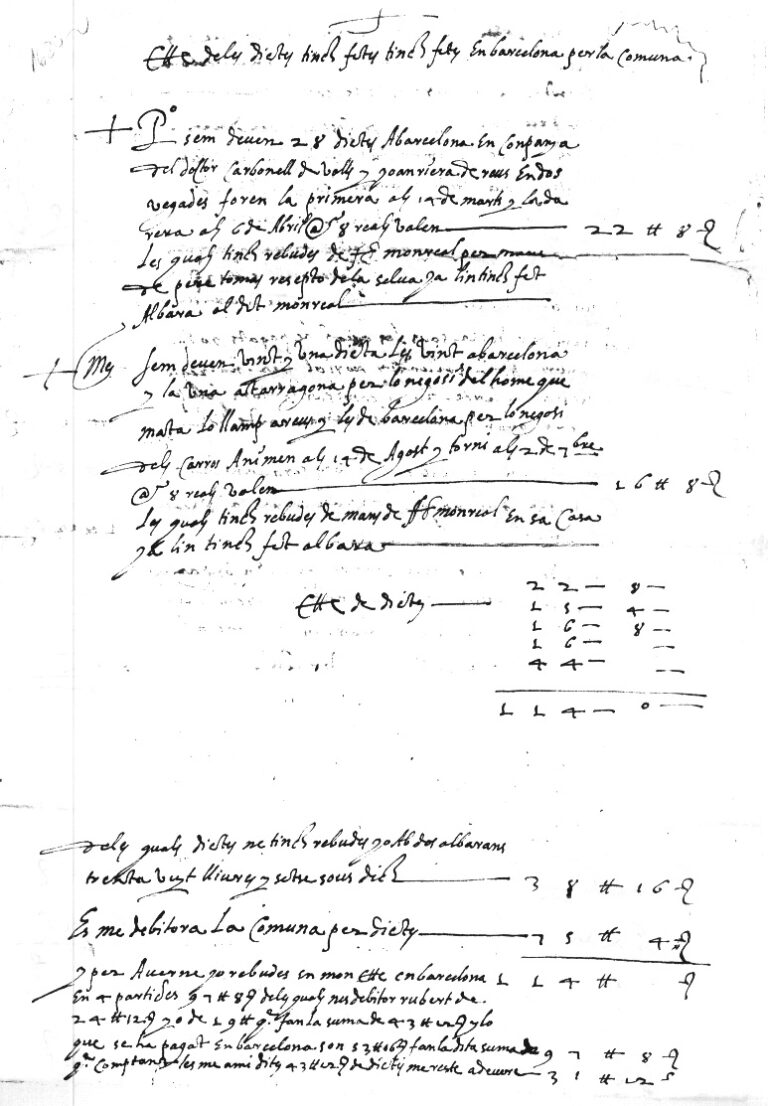 Cte dels dietes tinch fetes tinch fetes En barcelona per la Comuna
+ Po
sem deuen 28 dietes A barcelona En Conpanya
del doctor Carbonell de Valls y Joan riera de reus En dos
vegades foren la primera als 14 de mars y la da
rera als 6 de Abril @ 8 reals valen 22 ⁊⁊ 8 s
Les quals tinch rebudes de monreal per mans
de pere tomas resepto de la selva ya lin tinch fet
Albara al dit monreal
+ Mes sem deuen vint y una dieta Les vint a barcelona
y la una a tarragona per lo negosi del home que
mata lo llamp a reus y les de barcelona per lo negosi
dels Carros Animen als 14 de Agost y torni als 2 de 7bre
@ 8 reals valen 16 ⁊⁊ 8 s
Les quals tinch rebudes de mans de monreal En sa Casa
ya lin tinch fet albara
Cte de dietes
22 — 8 —
15 — 4 —
16 — 8 —
16 — —
44 — —
114 — 0 —
dels quals dietes ne tinch rebudes yo Ab dos albarans
trenta vuyt lliures y setse sous dich 38 ⁊⁊ 16 s
Es me debitora La Comuna per dietes 75 ⁊⁊ 4 s
y per Auerne yo rebudes en mon Cte en barcelona 114 ⁊⁊ s
En 4 partides 97 ⁊⁊ 8 s dels quals nes debitor rubert de
24 ⁊⁊ 12 s y o de 19 ⁊⁊ q fan la suma de 43 ⁊⁊ 12 s y lo
que se ha pagat En barcelona son 53 ⁊⁊ 16 s fan la dita suma de 97 ⁊⁊ 8 s
q Comptant les me a mi dites 43 ⁊⁊ 12 s de dietes me reste a deure 31 ⁊⁊ 12 s